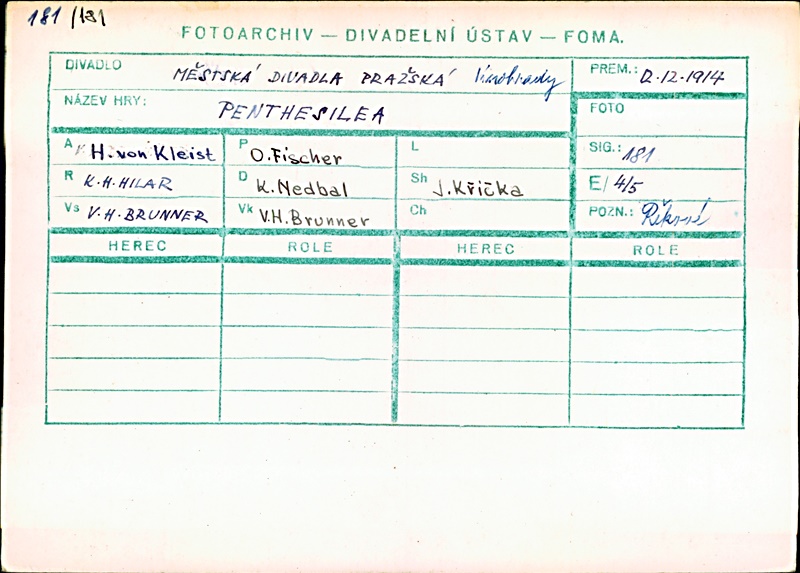 181 /131
FOTOARCHIV — DIVADELNÍ ÚSTAV — FOMA.
DIVADLO MĚSTSKÁ DIVADLA PRAŽSKÁ Vinohrady
PREM.: 12.1914
NÁZEV HRY: PENTHESILEA
FOTO
A H. von Kleist P O. Fischer L
SIG.: 181
R K.H. HILAR D K. Nedbal Sh J. Křička
E/ 4/5
Vs V.H. BRUNNER Vk V.H. Brunner Ch
POZN.:
HEREC ROLE HEREC ROLE